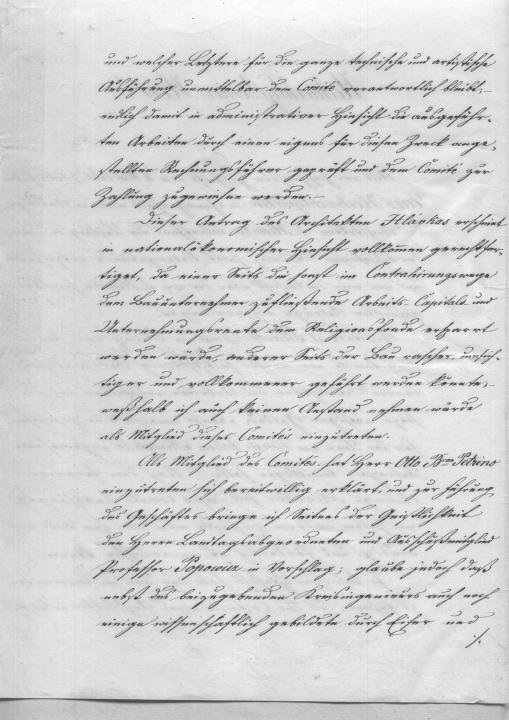 und welcher Letztere für die ganze technische und artistische
Ausführung unmittelbar dem Comité verantwortlich bleibt;–
endlich damit in administrativer Hinsicht die ausgeführ-
ten Arbeiten durch einen eigens für diesen Zweck ange-
stellten Rechnungsführer geprüft und dem Comité zur
Zahlung zugewiesen werden.–
Dieser Antrag des Architekten Hlavkas erscheint
in nationalökonomischer Hinsicht vollkommen gerechtfer-
tiget, da einer Seits die sonst im Contrahirungswege
dem Bauunternehmer zufließende Arbeits-Capitals und
Unternehmungsrente dem Religionsfonde erspart
werden würde, anderer Seits der Bau rascher, umsich-
tiger und vollkommener geführt werden könnte,–
weßhalb ich auch keinen Anstand nehmen würde
als Mitglied dieses Comités einzutreten.
Als Mitglied des Comités hat Herr Otto Bon Petrino
einzutreten sich bereitwillig erklärt, und zur Führung
des Geschäftes bringe ich Seitens der Geistlichkeit
den Herrn Landtagsabgeordneten und Ausschußmitglied
Professor Popowicz in Vorschlag; glaube jedoch daß
nebst des beizugebenden Kreisingenieurs auch noch
einige wissenschaftlich gebildete durch Eifer und
./.